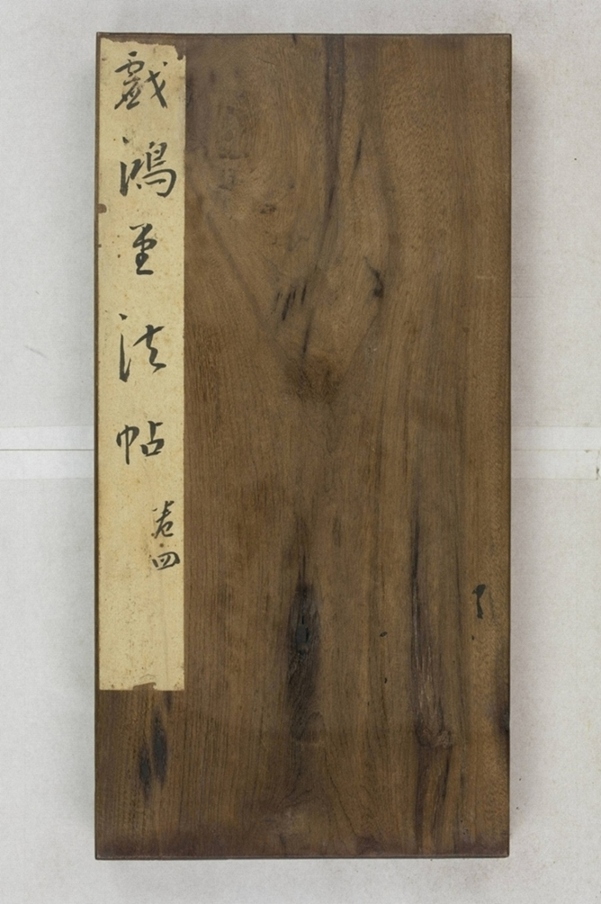 戲鴻堂法帖
卷四